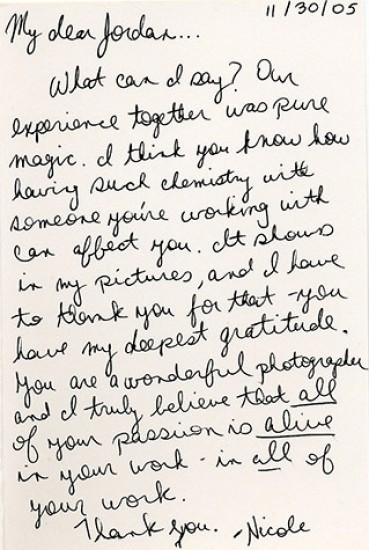 11/30/05
My dear Jordan...
What can I say? Our
experience together was pure
magic. I think you know how
having such chemistry with
someone you're working with
can affect you. It shows
in my pictures, and I have
to thank you for that - you
have my deepest gratitude.
You are a wonderful photographer
and I truly believe that all
of your passion is alive
in your work - in all of
your work.
Thank you. -Nicole